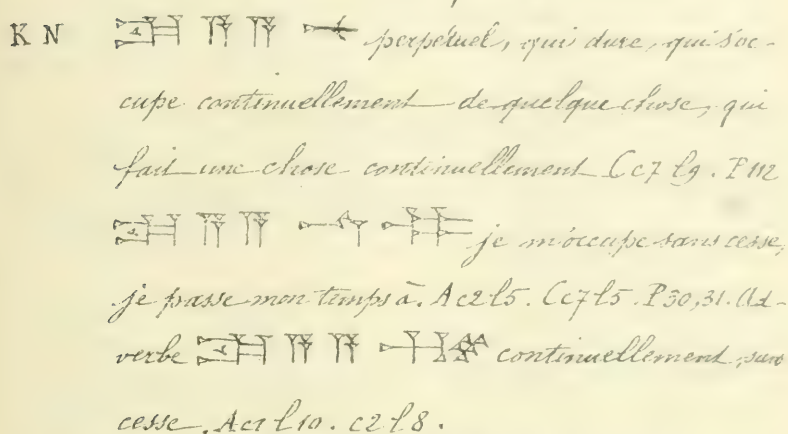 K N 𒅗 𒀀 𒀀 𒉡 perpétuel, qui dure, qui s'oc-
cupe continuellement de quelque chose, qui
fait une chose continuellement Cc7 l9. P112
𒅗 𒀀 𒀀 𒈾 𒀝 je m'occupe sans cesse,
je passe mon temps à. Ac2 l5. Cc7 l5. P30,31. Ad-
verbe 𒅗 𒀀 𒀀 𒉆 continuellement, sans
cesse. Ac1 l10. c2 l8.